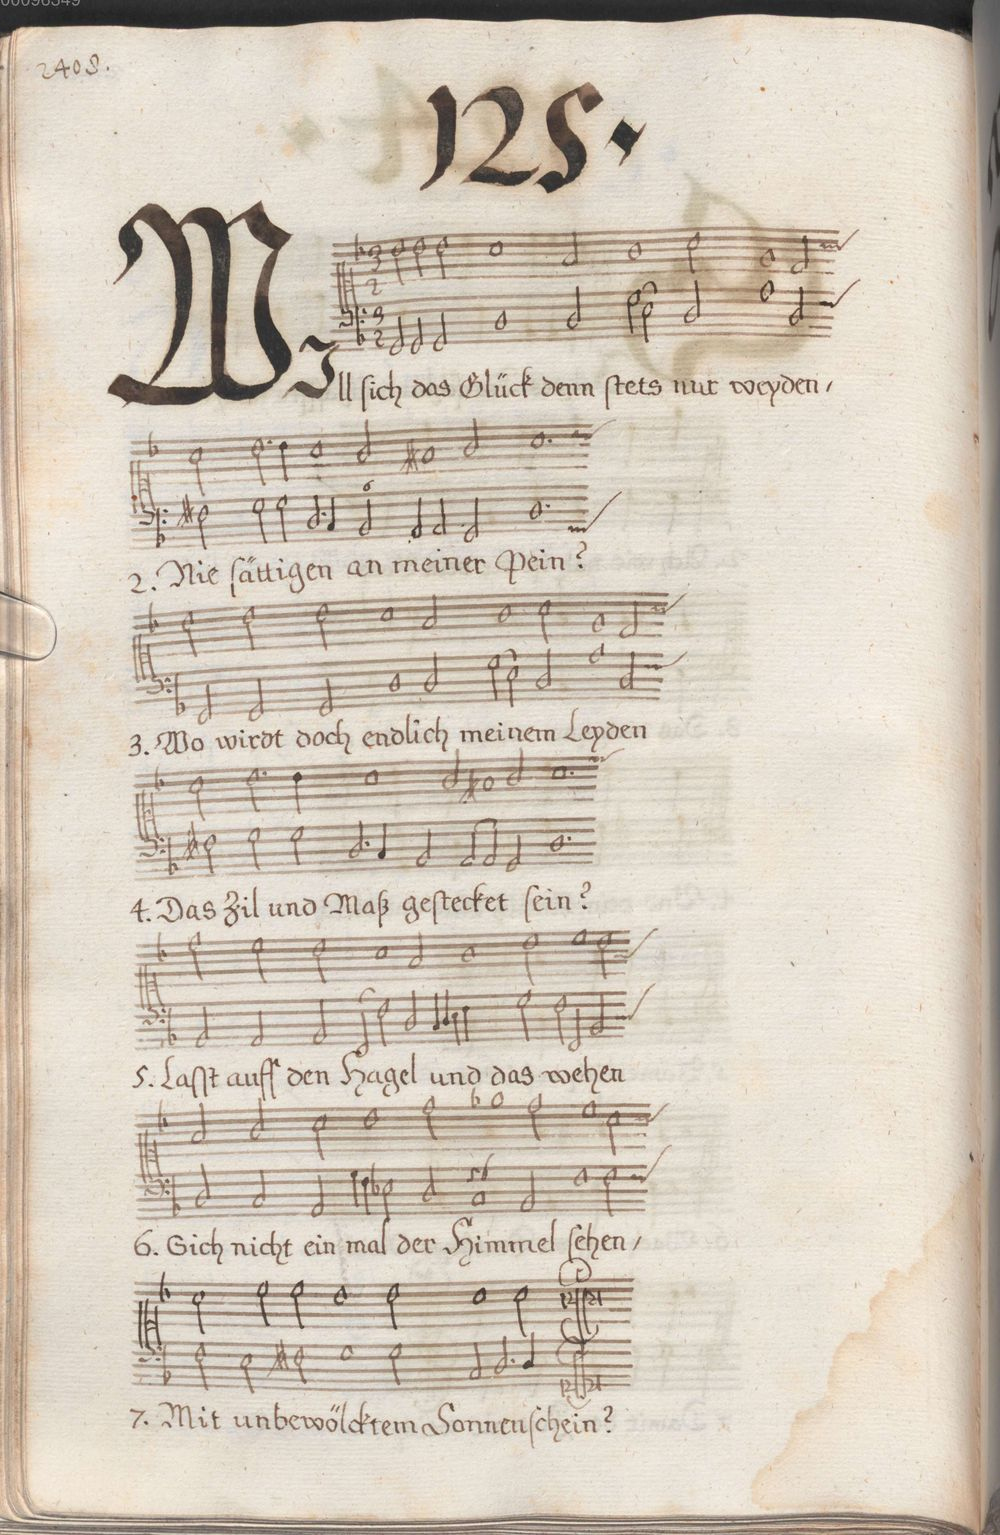 00096549
2408.
125.
Will sich das Glück denn stets nur weyden,
2. Nie sättigen an meiner Pein?
3. Wo wirdt doch endlich meinem Leyden
4. Das Zil und Maß gestecket sein?
5. Lasst auff den Hagel und das wehen
6. Sich nicht ein mal der Himmel sehen,
7. Mit unbewölcktem Sonnenschein?